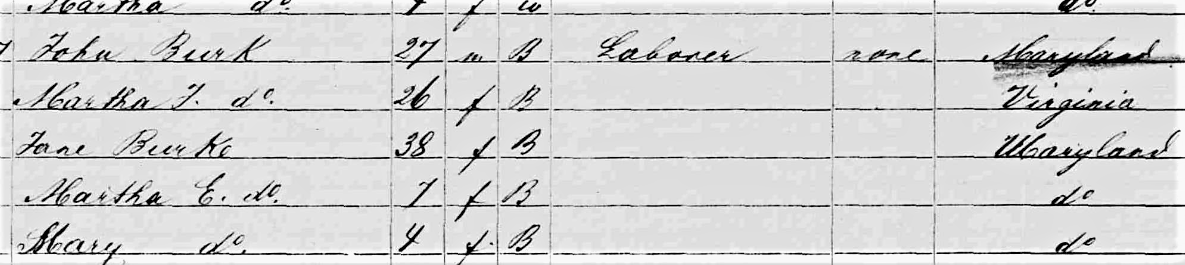 Martha do. 4 f w do.
John Burk 27 m B Laborer none Maryland
Martha J. do. 26 f B Virginia
Jane Burke 38 f B Maryland
Martha E. do. 7 f B do
Mary do. 4 f. B do